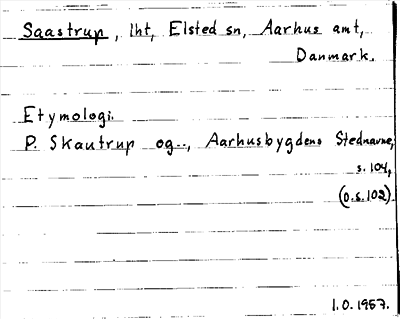 Saastrup, lht, Elsted sn, Aarhus amt,
Danmark.
Etymologi.
P. Skautrup og.., Aarhusbygdens Stednavne,
s. 104,
(o.s. 102).
I.O. 1957.